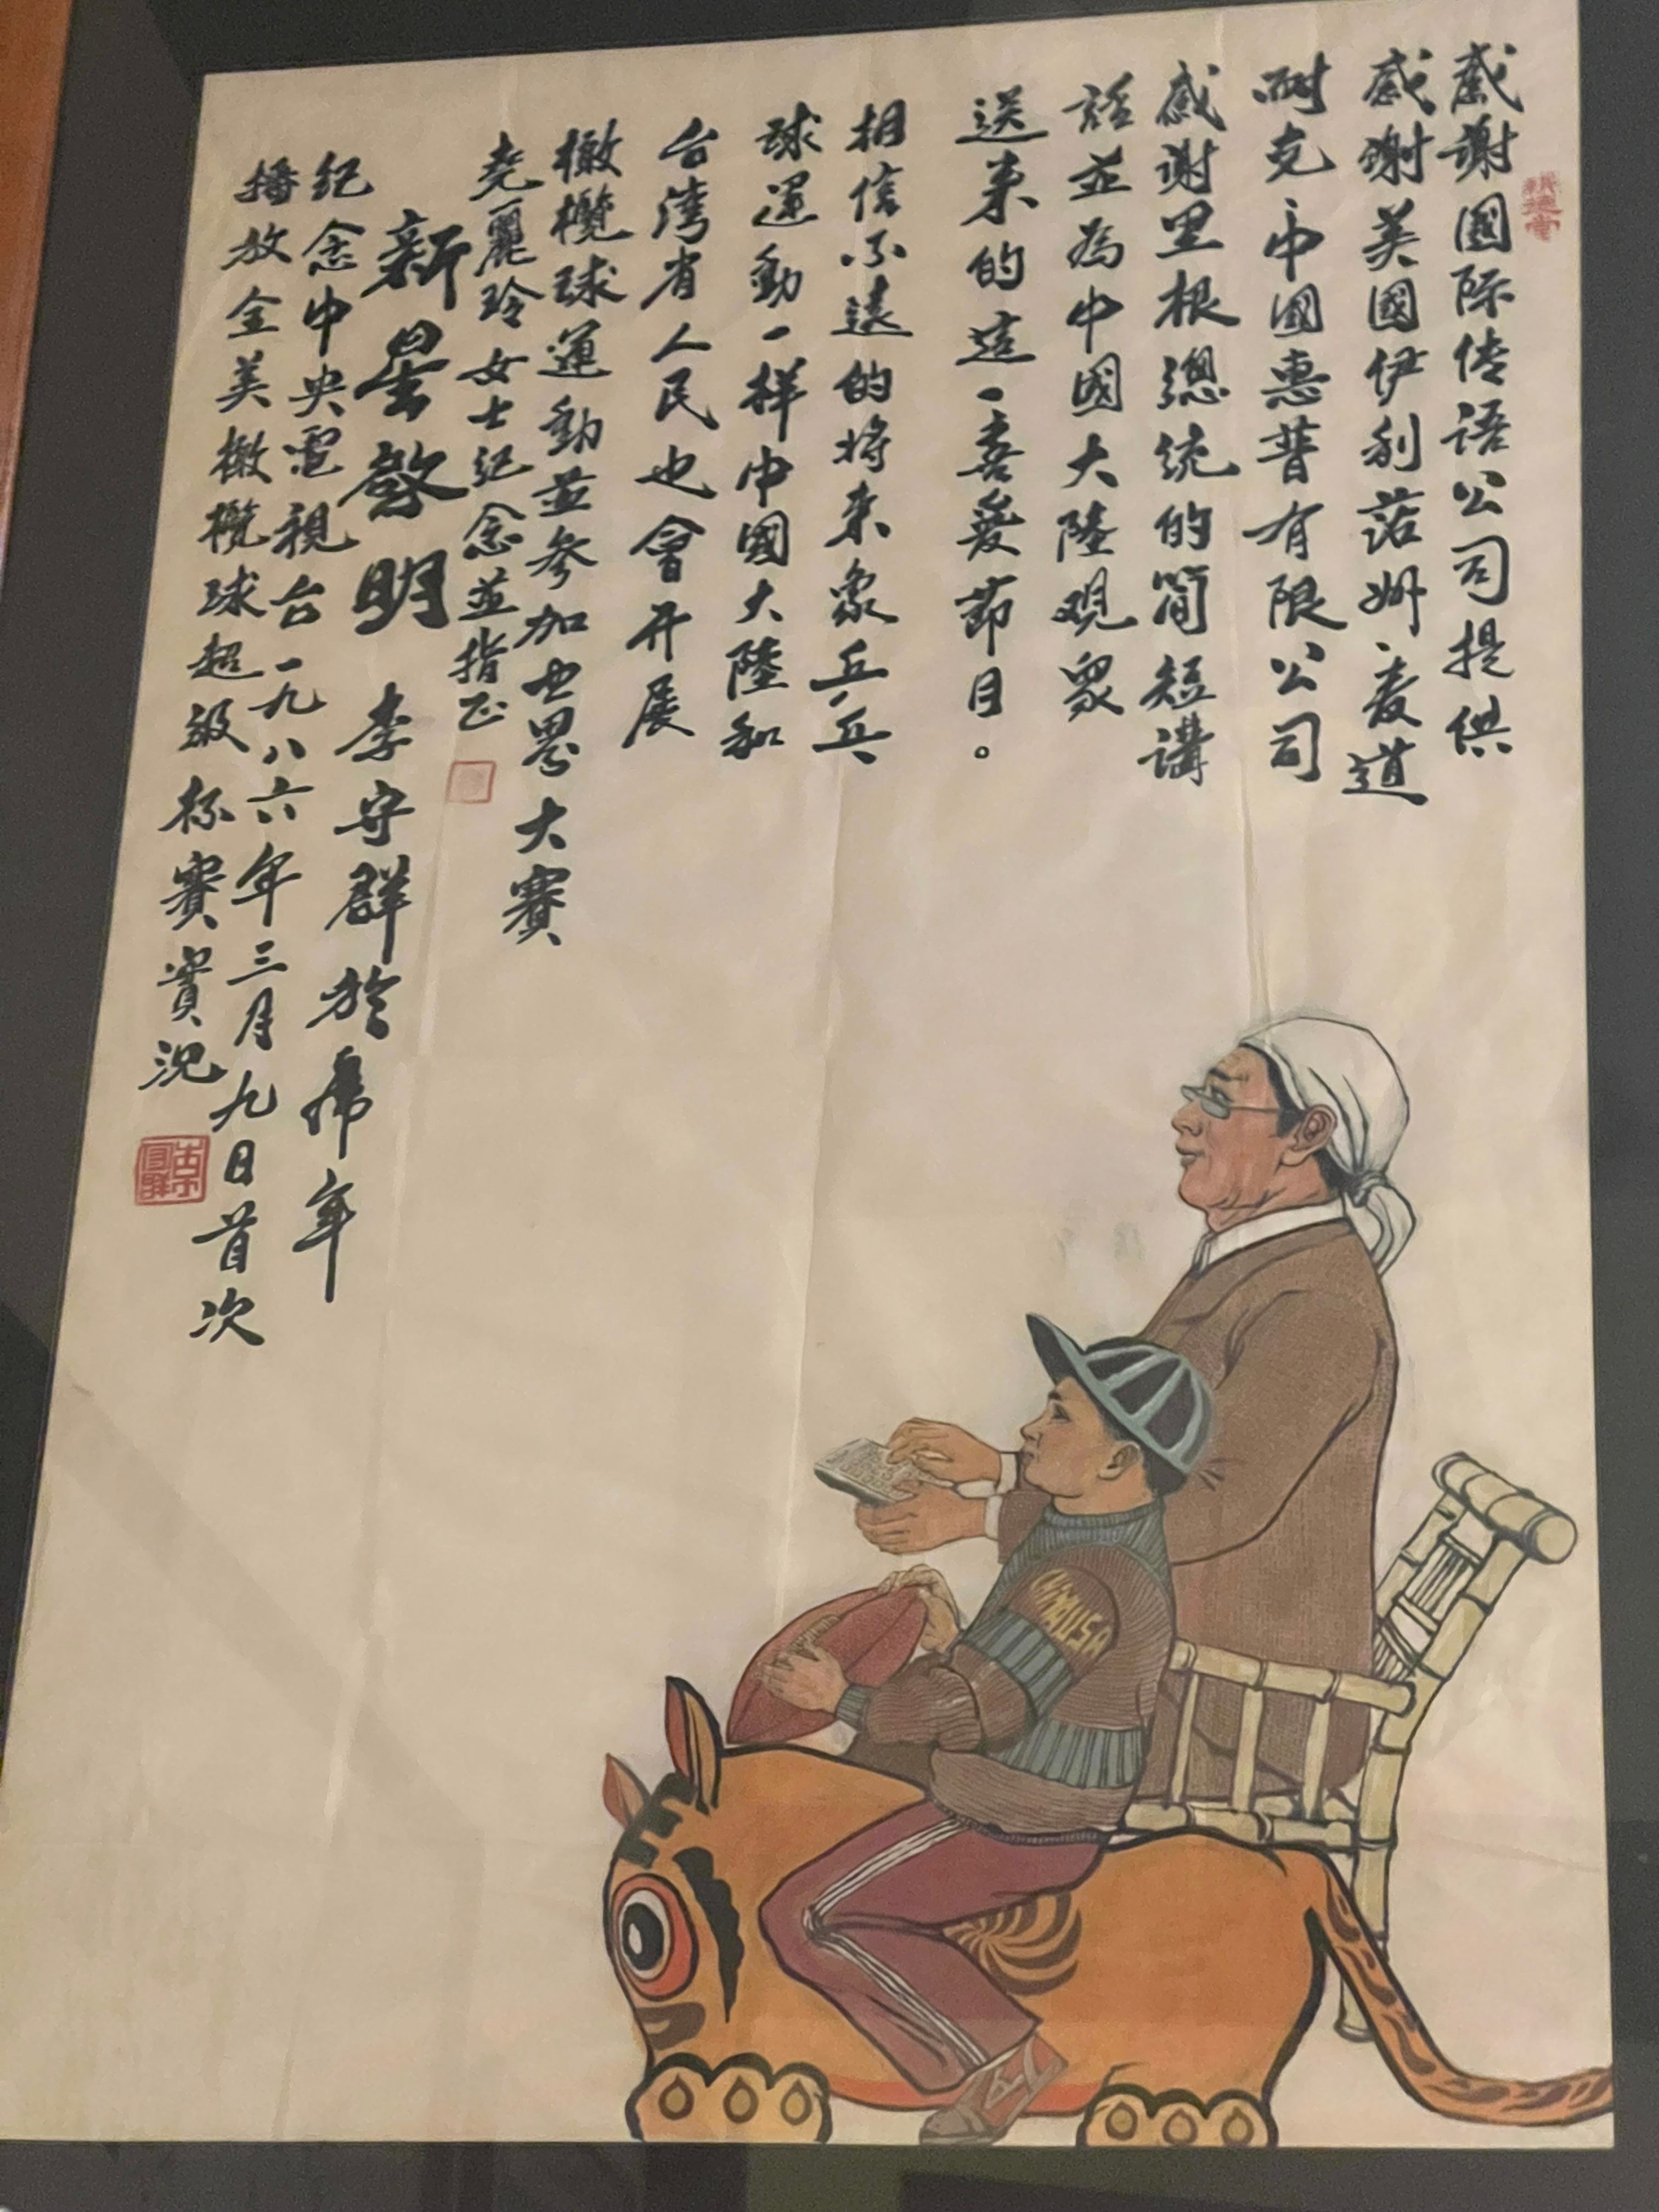 感谢國际传语公司提供
感谢美國伊利诺州、麦道
耐克、中國惠普有限公司
感谢里根總统的简短講
話並為中國大陸观眾
送来的這一喜爱節目。
相信不遠的将来象乒乓
球運動一样中國大陸和
台灣省人民也會开展
橄欖球運動並参加世界大賽
尧麗玲女士纪念並指正
新星啓明 李守群於虎年
纪念中央電視台一九八六年三月九日首次
播放全美橄欖球超級杯賽實况